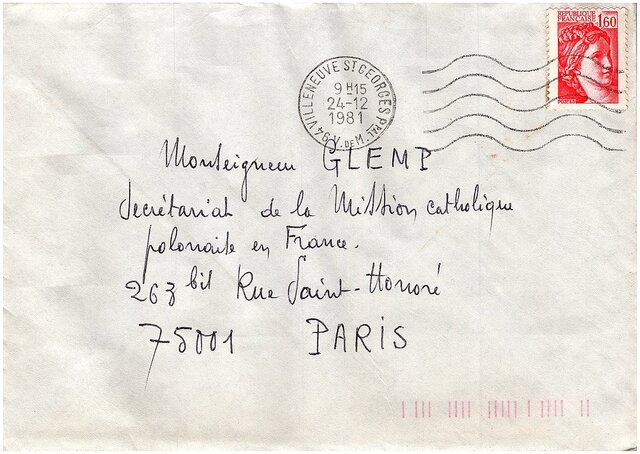 REPUBLIQUE
FRANCAISE
1,60
POSTES
94 VILLENEUVE ST GEORGES PPAL V. DE M.
9 H 15
24-12
1981
Monseigneur GLEMP
Secrétariat de la Mission catholique
polonaise en France.
263 bis Rue Saint-Honoré
75001 PARIS